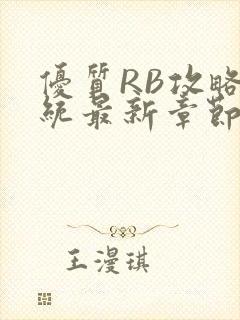 優質RB攻略
統最新章節
王漫琪